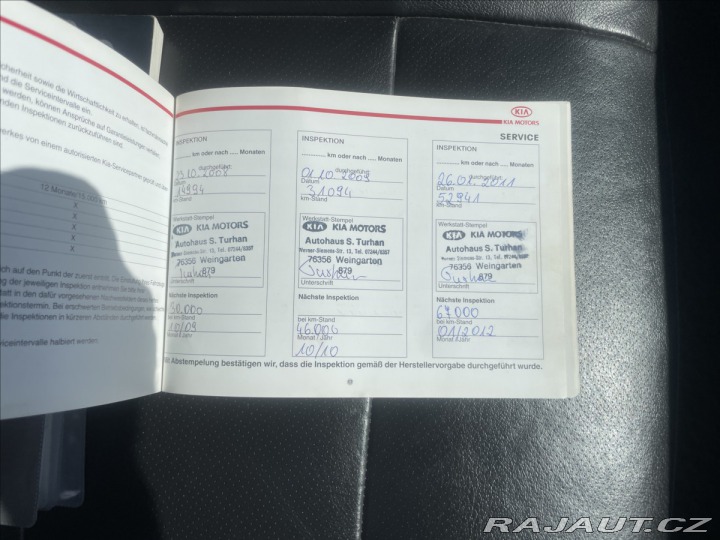 cherheit sowie die Wirtschaftlichkeit zu erhalten, ist
nd die Serviceintervalle ein.
werden, können Ansprüche auf Garantieleistungen
nden Inspektionen zurückzuführen sind.
erkes von einem autorisierten Kia-Servicepartner
12 Monate/15 000 km
X
X
X
X
ch auf den Punkt der zuerst eintritt. Die
g der jeweiligen Inspektion entnehmen Sie
statt in den dafür vorgesehenen
ektionstermin. Bei erschwerten
die Inspektionen in kürzeren Abständen durchgeführt werden.
viceintervalle halbiert werden.
KIA
KIA MOTORS
SERVICE
INSPEKTION
km oder nach ..... Monaten
durchgeführt:
15.10.2008
Datum
14994
km-Stand
Werkstatt-Stempel
KIA KIA MOTORS
Autohaus S. Turhan
Werner-Siemens-Str. 13, Tel. 07244/6397
76356 Weingarten
879
Unterschrift
Nächste Inspektion
30.000
bei km-Stand
10/09
INSPEKTION
......... km oder nach ..... Monaten
durchgeführt:
01.10.2009
Datum
31094
km-Stand
Werkstatt-Stempel
KIA KIA MOTORS
Autohaus S. Turhan
Werner-Siemens-Str. 13, Tel. 07244/6397
76356 Weingarten
879
Unterschrift
Nächste Inspektion
46.000
bei km-Stand
10/10
Monat / Jahr
INSPEKTION
......... km oder nach ..... Monaten
durchgeführt:
26.01.2011
Datum
52941
km-Stand
Werkstatt-Stempel
KIA KIA MOTORS
Autohaus S. Turhan
76356 Weingarten
879
Unterschrift
Nächste Inspektion
67.000
bei km-Stand
01/2012
Monat / Jahr
Mit Abstempelung bestätigen wir, dass die Inspektion gemäß der Herstellervorgabe durchgeführt wurde.
RAJAUT.CZ